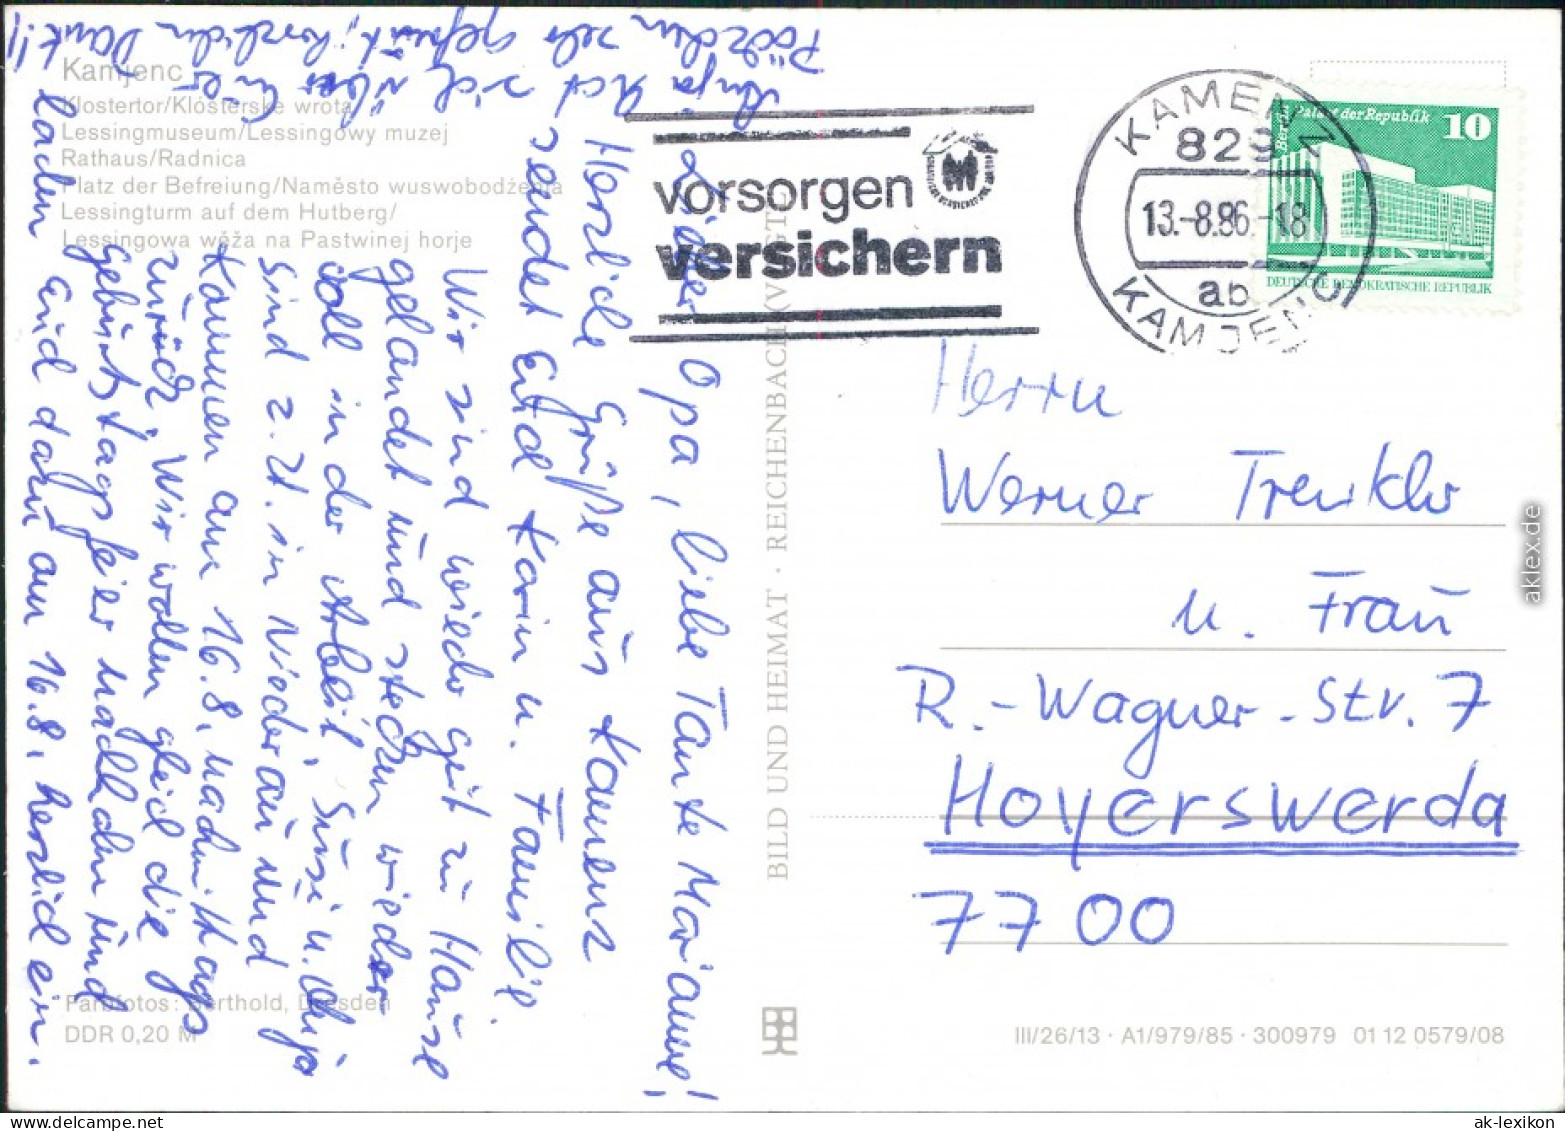 Kamjenc
Klostertor/Klósterske wrota
Lessingmuseum/Lessingowy muzej
Rathaus/Radnica
Platz der Befreiung/Naměsto wuswobodźenja
Lessingturm auf dem Hutberg/
Lessingowa wěža na Pastwinej horje
Lieber Opa, liebe Tante Marianne!
Herzliche Grüße aus Kamenz
sendet Euch Karin u. Familie.
Wir sind wieder gut zu Hause
gelandet und stecken wieder
voll in der Arbeit. Susi u. Anja
sind z. Zt. in Niederau und
kommen am 16.8. nachmittags
zurück. Wir wollen gleich die
Geburtstagsfeier nachholen und
laden Euch dazu am 16.8. herzlich ein.
Anja hat sich über Euer
Päckchen sehr gefreut, herzlichen Dank!!
Farbfotos: Berthold, Dresden
DDR 0,20 M
BILD UND HEIMAT · REICHENBACH (VOGTL)
vorsorgen
versichern
KAMENZ
829
13.-8.86.-18
ab
KAMJENC
Berlin Palast der Republik 10
DEUTSCHE DEMOKRATISCHE REPUBLIK
Herrn
Werner Trenkler
u. Frau
R.-Wagner-Str. 7
Hoyerswerda
7700
III/26/13 · A1/979/85 · 300979 01 12 0579/08
aklex.de
ak-lexikon